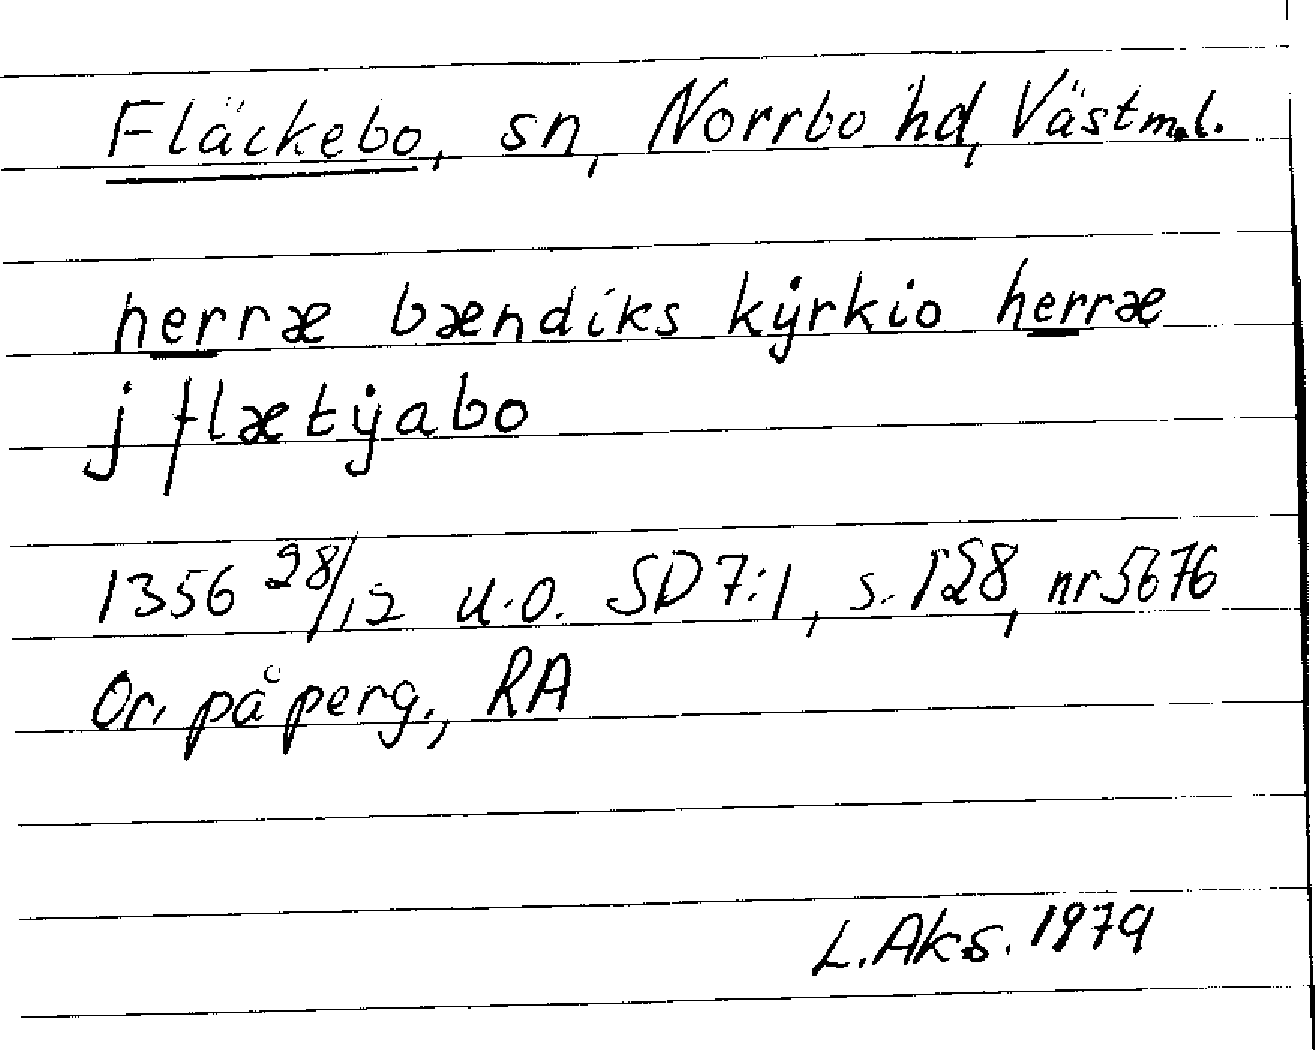 Fläckebo, sn, Norrbo hd, Västm.l.
herræ bændiks kẏrkio herræ
j flætẏabo
1356 28/12 u.o. SD 7:1, s. 128, nr 5676
Or. på perg., RA
L. Aks. 1979